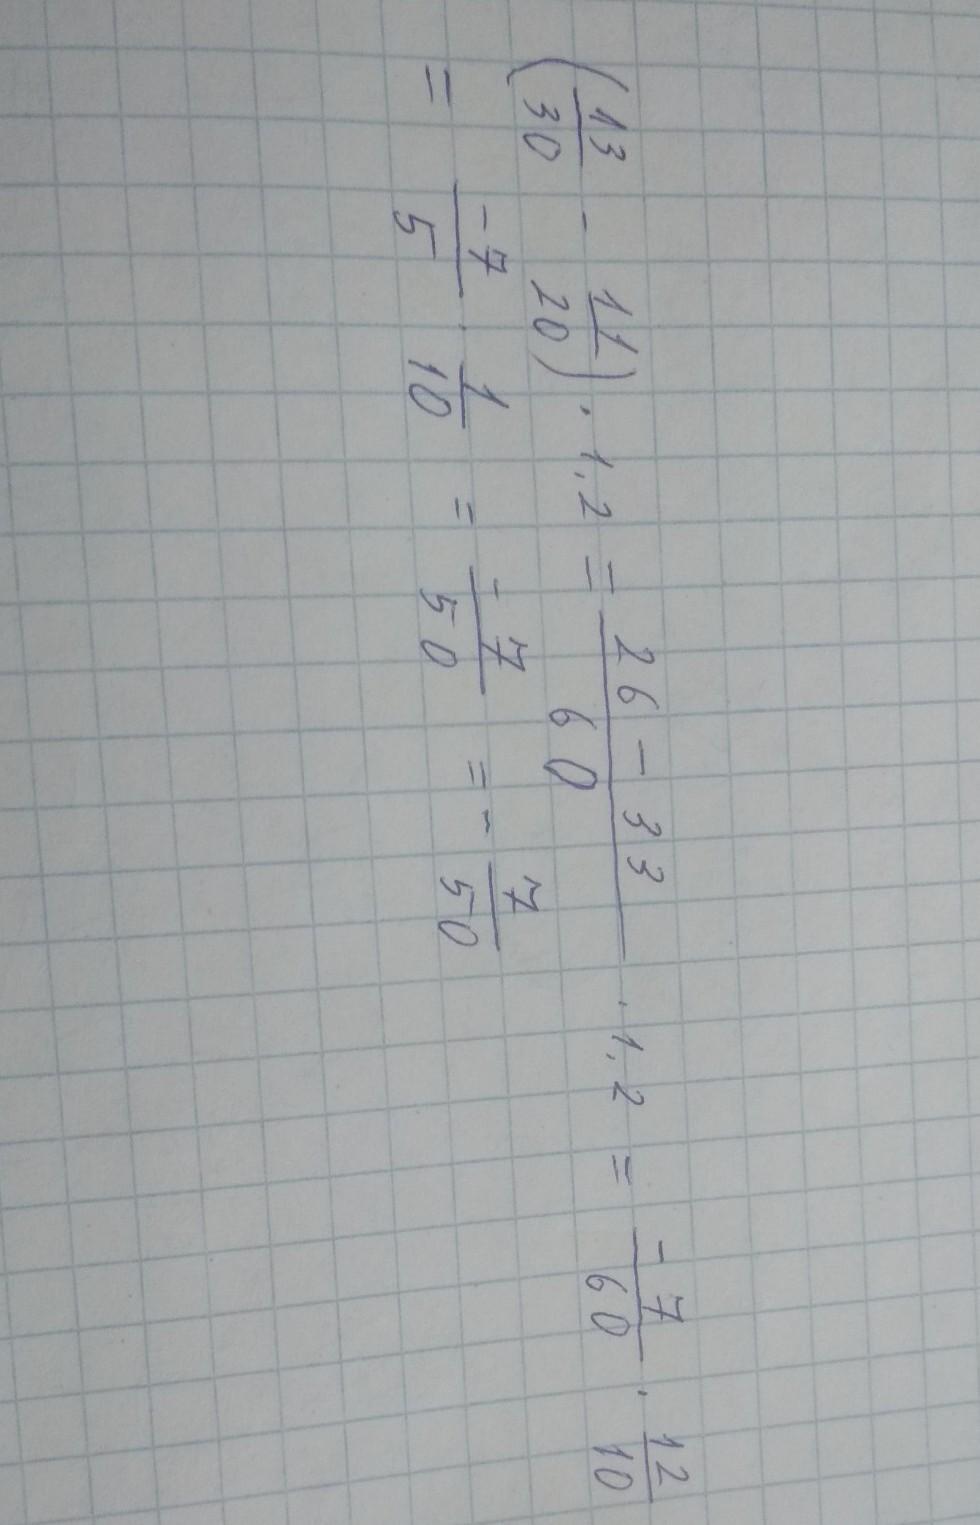 (13/30 - 11/20) · 1,2 = (26 - 33)/60 · 1,2 = -7/60 · 12/10
= -7/5 · 1/10 = -7/50 = - 7/50